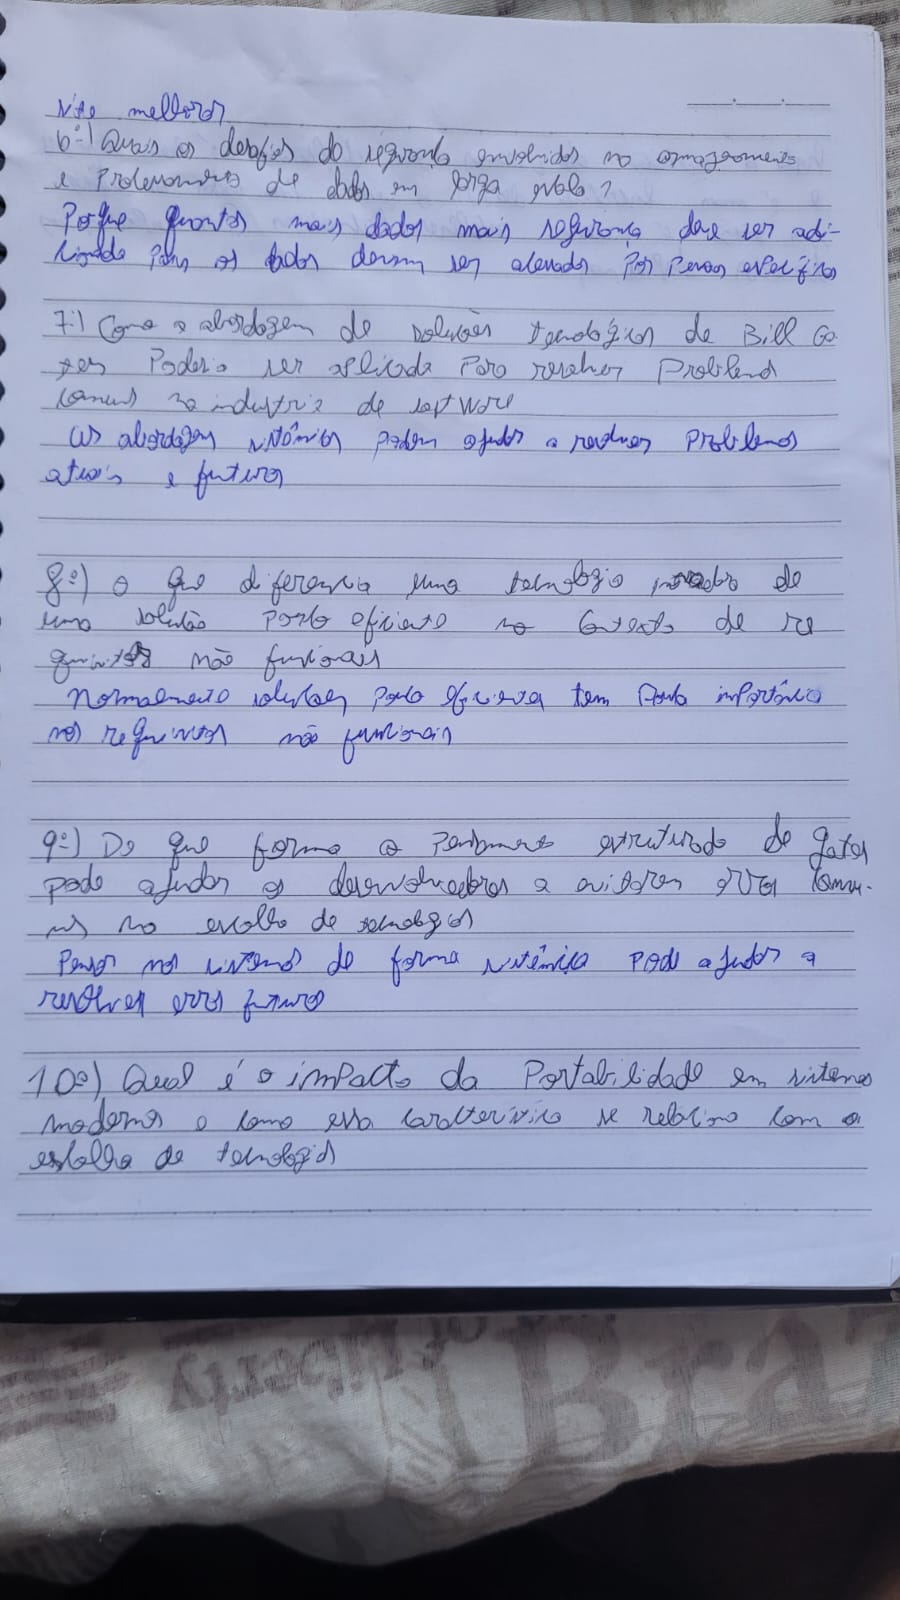 melhor
6º) Quais os desafios de segurança envolvidos no armazenamento
e processamento de dados em larga escala?
Porque quantos mais dados mais segurança deve ser adi-
cionada pois os dados devem ser acessados por pessoas específicas
7º) Como a abordagem de soluções tecnológicas de Bill Ga-
tes Poderia ser aplicada para resolver Problemas
comuns na industria de software
as abordagens sistêmicas podem ajudar a resolver Problemas
atuais e futuros
8º) O que diferencia uma tecnologia inovadora de
uma solução pouco eficiente no contexto de re
quisitos não funcionais
Normalmente soluções pouco eficientes tem Pouca importância
nos requisitos não funcionais
9º) De que forma o Pensamento estruturado de gates
pode ajudar os desenvolvedores a evitarem erros comu-
ns na escolha de tecnologias
Pensar nos sistemas de forma sistêmica Pode ajudar a
resolver erros futuros
10º) Qual é o impacto da Portabilidade em sistemas
modernos e como essa característica se relaciona com a
escolha de tecnologias
liberty
Braz